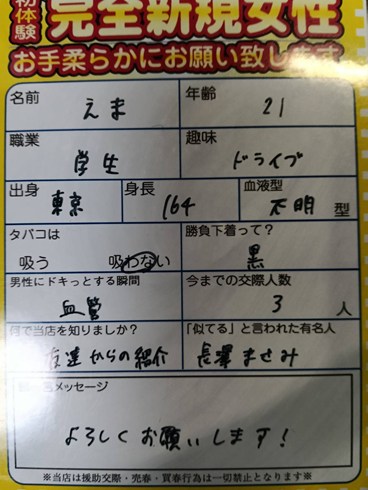 初体験 完全新規女性
お手柔らかにお願い致します
名前 えま 年齢 21
職業 学生 趣味 ドライブ
出身 東京 身長 164 血液型 不明 型
タバコは 勝負下着って?
吸う 吸わない 黒
男性にドキっとする瞬間 今までの交際人数
血管 3 人
何で当店を知りましたか? 「似てる」と言われた有名人
友達からの紹介 長澤まさみ
メッセージ
よろしくお願いします!
※当店は援助交際・売春・買春行為は一切禁止となります※